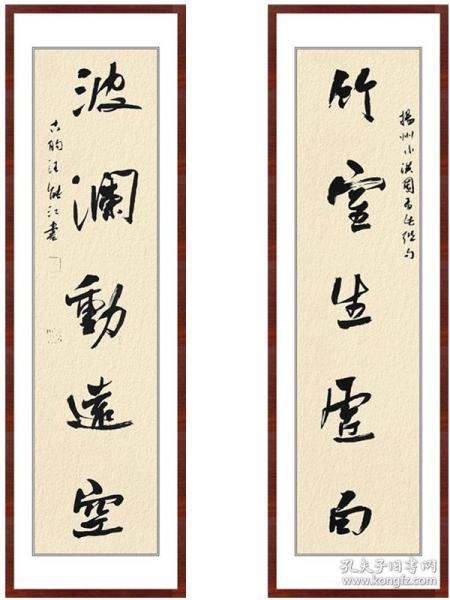 竹室生虚白
揚州小洪園有此聯句
波瀾動遠空
古韵汪能江書
孔夫子旧书网
www.kongfz.com